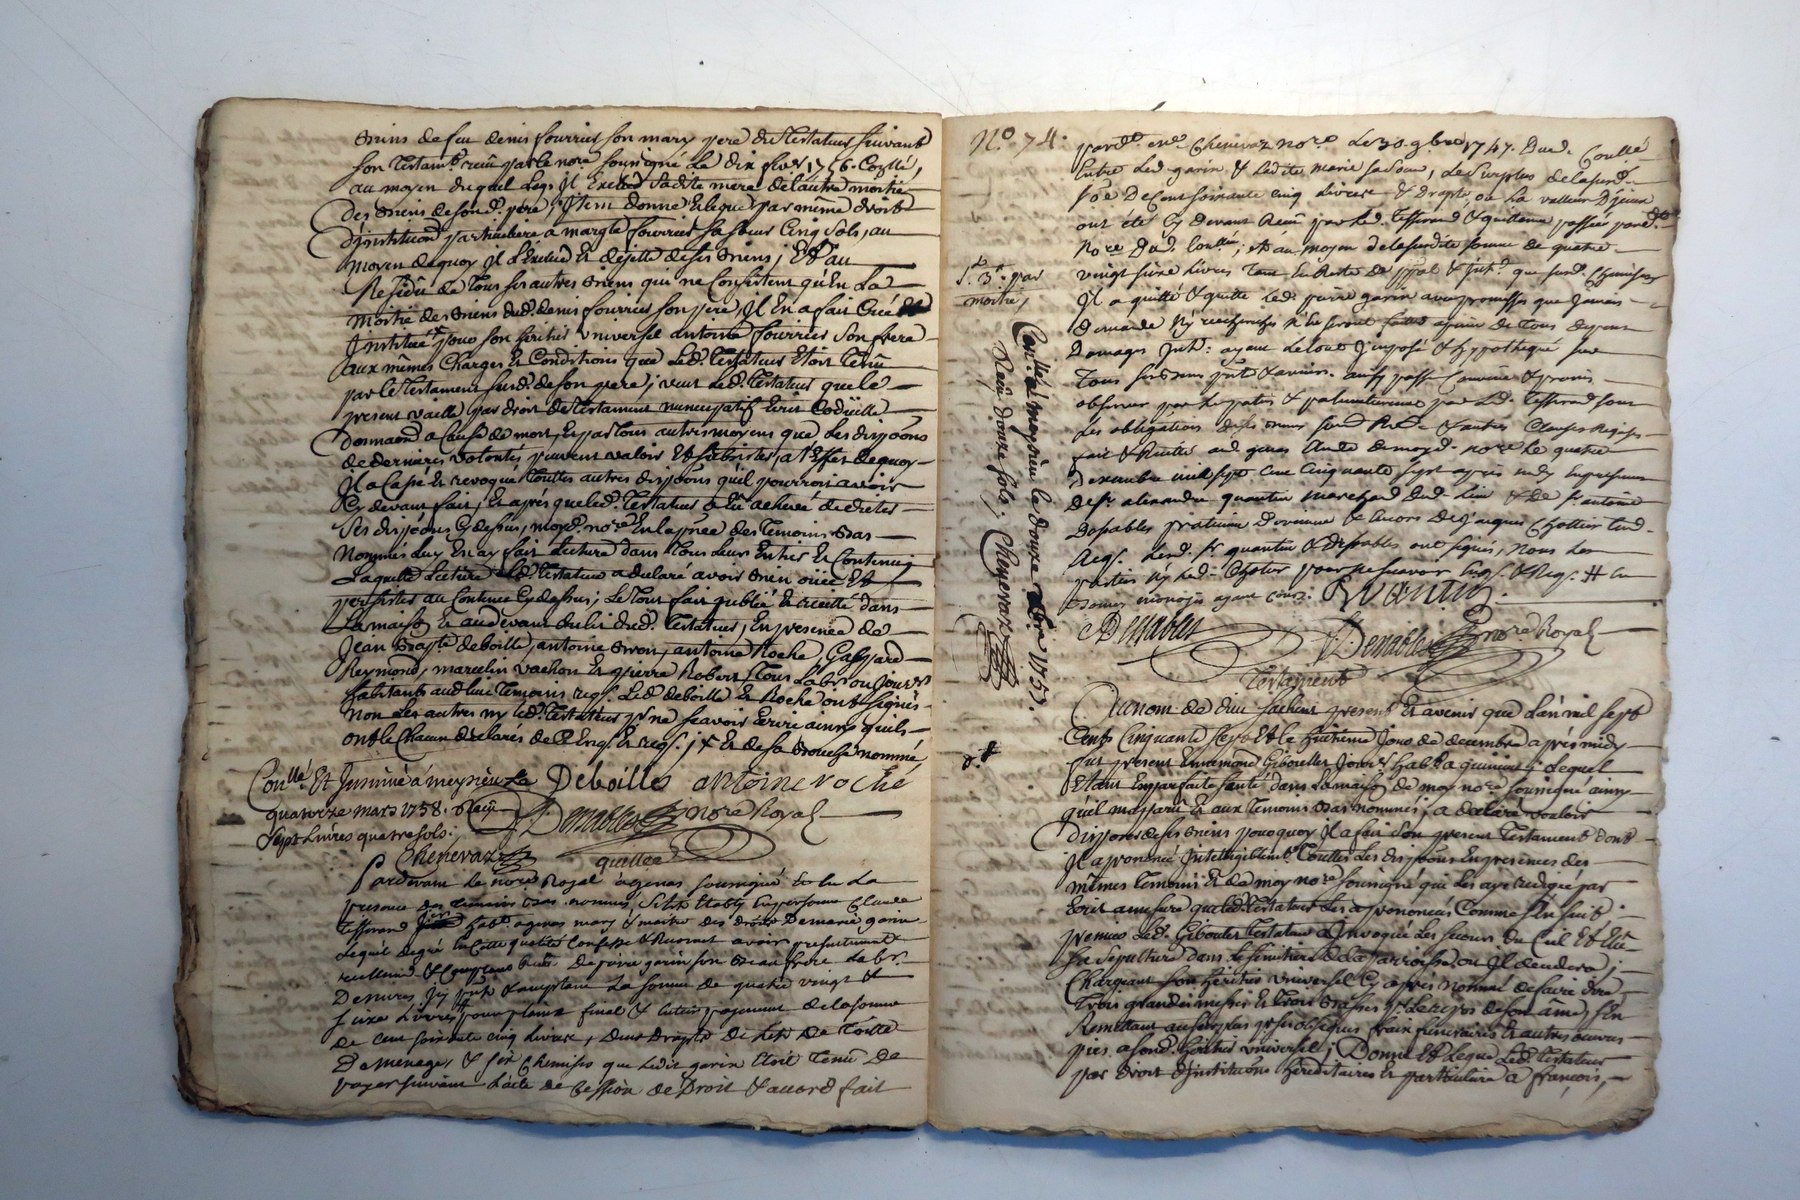 Biens de feu denis fourrier son mary pere du Testateur suivant
son Testamt. reçu par le nore. soussigné Le dix 1756. Conllé,
au moyen duquel Legs Il Exclud Sadite mere de L'autre moitié
des Biens de sond. pere, Item donne & legue par même droit
d'institution particuliere a margte fourrier sa sœur Cinq Sols, au
moyen de quoy Il L'Exclud & dejette de ses Biens; Et au
Residu de Tous ses autres Biens qui ne Consistent qu'En La
moitié des Biens dud. denis fourrier son pere, Il En a fait Créé &
Institué pour son heritier Universel antoine fourrier Son frere
aux mêmes Charges & Conditions que Led. Testateur Etoit Tenu
par le Testament susd. de son pere; veut Led. Testateur que le
present vaille par droit de Testament nuncupatif Ecrit Codicille
donnaond a Cause de mort, & par Tous autres moyens que Les disp̃ons
de dernieres volontés peuvent valoir Et subsister, a l'Effet de quoy
Il a Cassé & revoqué Touttes autres disp̃ons qu'il pourroit avoir
Cy devant fait, & aprés que led. Testateur a Eu achevé de dicter
Ses disp̃ons Cy dessus, moyd. nore En la p̃nce des Temoins Bas
Nommés Luy En ay fait Lecture dans Tout leur Entier & Contenu
Laquelle Lecture Led. Testateur a declaré avoir Bien ouïe Et
persister au Contenu Cy dessus; Le Tout fait publié & recitté dans
La maison & audevant du lit dud. Testateur, En presence de
Jean Bapte deboille, antoine Broin, antoine Roche, Gaspard
Reymond, marcelin vachon & pierre Robert, Tous Labrs ou Journrs
habitants aud lieu Temoins reqs. Led. deboille & Roche ont signés
non Les autres ny led. Testateur pr ne scavoir Ecrire ainsy qu'ils
ont le Chacun declarés de ce Enqs. & reqs. & de sa Bouche nommé
Deboilles antoine roche
Conllé Et Insinué à meysieu Le
quatorze mars 1758. Reçu
Sept Livres quatre sols;
Chenevaz
Denables nore Royal
quittce
Pardevant Le nore Royal a genas soussigné & en La
presence des temoins bas nommés, S'est Etably En personne Claude
tisserand habt. a genas mary & maitre des droits De marie garin
Lequel de gré En Cette qualité Confesse & Reconnoit avoir presentement
reellement & Comptant Reçu De pierre garin son Beau frere Labr.
Demeurt La somme de quatre vingt &
seize Livres pour plein final & Entier payement de la somme
de Cent soixante cinq Livres, Deux Draps de Lit de Toille
De menage, & six Chemises que Ledit garin Etoit Tenu de
payer suivant L'acte de Cession de Droit & accord fait
N.o 74.
pard.t me. Chenevaz nore. Le 30. 9bre 1747. Dued. Conllé
Entre Led. garin & Ledite marie sa sœur, Le surplus de lasusd.
s̃oe De Cent soixante cinq Livres & draps, ou La valleur D'iceux
ont été Cy Devant Recu par led. tisserand & quittance passée pard.t
Nore. Dud. Conllé; Et au moyen delasusdite somme de quatre
vingt seize Livres Tout En Reste De p̃pal & Int. que susd. Chemises
Il a quitté & quitte Led. pierre garin avec promesse que Jamais
Demande Ny recherches N'en seront faites a peine De Tous Depens
Domages Int.; ayant Le tout Imposé & hypothequé sur
Tous ses Biens p̃nts & avenir. ainsy passé Convenu & promis
observer par Les parties & particulierement par Led. tisserand sous
Les obligations De ses Biens & autres Clauses Requises
fait & Recité aud genas Etude de moyd. nore Le quatre
Decembre mil sept Cent Cinquante Sept après midy En presence
De sr. alexandre quantin Marchand Dud. Lieu & de sr. antoine
Desnables praticien & Encore De Jacques Chottier
Reqs. Lesd. sr quantin & desnables ont signés, Nons Les
parties Ny Led. Chottier pour ne scavoir Enqs. & Reqs.
Quantin
Denables Denables nore Royal
S. 3s. par
moitié,
Conllé a meysieu le douze Xbre 1757.
Reçu douze sols; Chenevaz
Testament
Au nom de dieu sachent present & avenir que L'an mil sept
Cents Cinquante sept & le huitieme Jour de decembre aprés midy
fut present Ennemond Gibouller Jour. habt. a Lequel
Etant En parfaite santé dans La maison de moy nore. soussigné ainsy
qu'il m'apparu & aux Temoins Bas nommés, a declaré vouloir
disposer de ses Biens pour quoy Il a fait Son present Testament dont
Il a prononcé Intelligiblemt. Touttes Les disp̃ons En presences des
mêmes temoins & de moy nore soussigné qui Les aye redigée par
Ecrit a mesure que led. Testateur Les a prononcées Comme s'En suit;
premier Led. Gibouller Testateur a Invoqué Les secours du Ciel & Elu
sa sepulture dans Le simetiere de La parroisse ou Il decedera;
Chargeant son héritier universel Cy aprés nommé de faire dire
Trois grandes messes & Trois Basses pr. Le repos de son ame; s'En
Remettant au surplus pr. ses obseques frais funeraires & autres œuvres
pies a sond. heritier universel; Donne Et Legue Led. testateur
par droit d'institutions hereditaires & particuliere a françois,